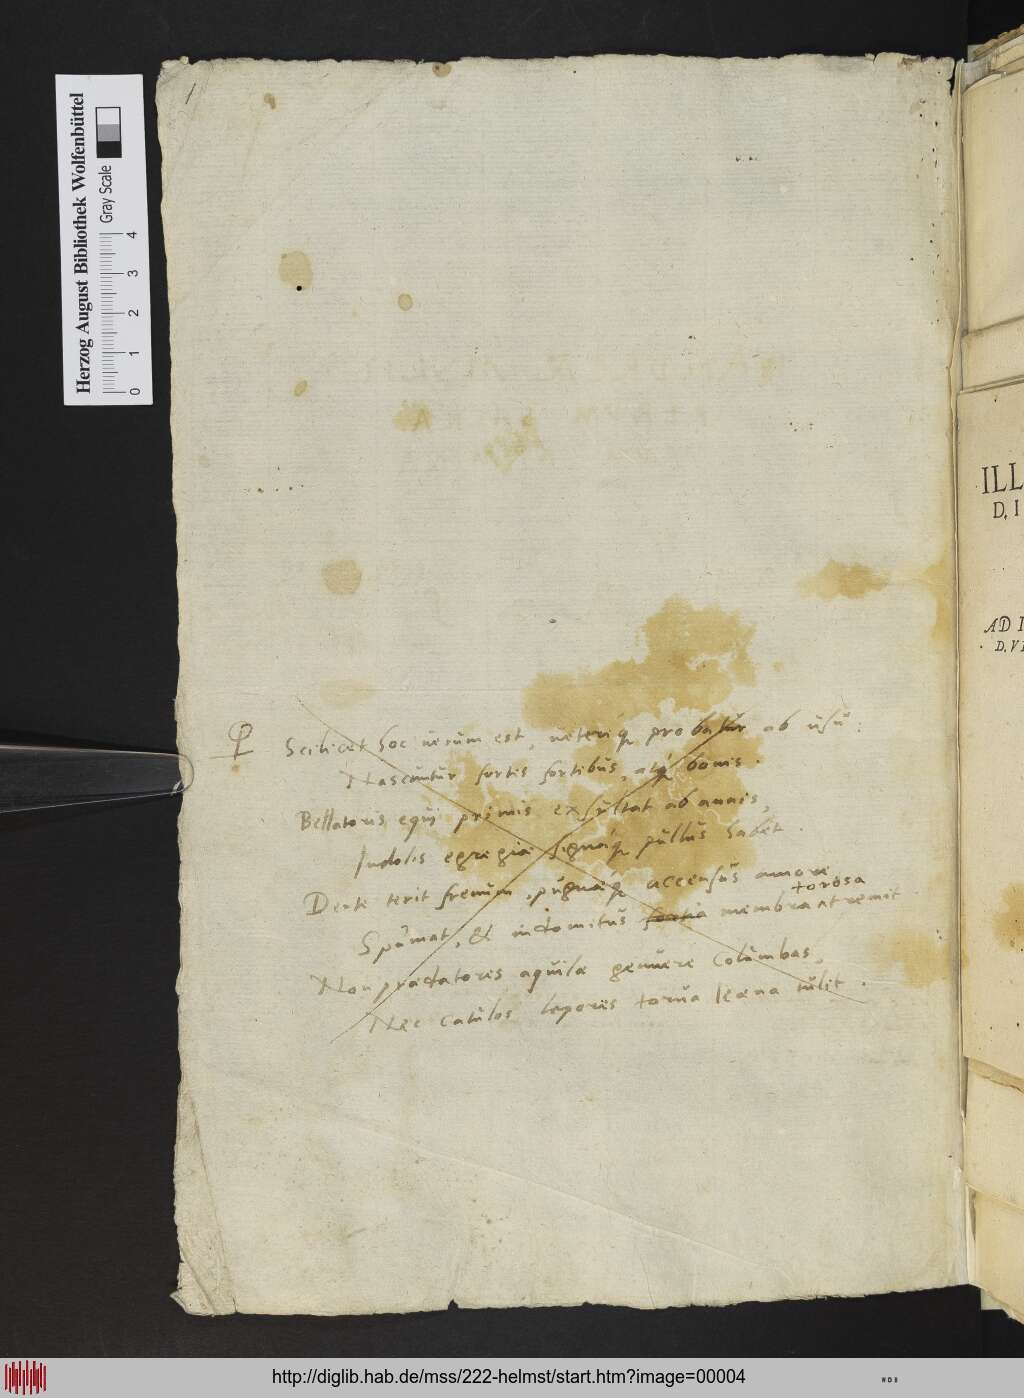 1
Herzog August Bibliothek Wolfenbüttel
Gray Scale
0 1 2 3 4
Scilicet hoc uerum est, ueteriq probatur ab usu:
Nascuntur fortis fortibus, atq bonis.
Bellatoris equi primis exsultat ab annis,
Indolis egregiæ signáq pullus habet.
Dente terit frenum, pugnæq accensus amore
torosa
Spumat, & indomitus fortia membra tremit
Non prædatores aquilæ genuere columbas,
Nec catulos lepores torua leæna tulit.
ILL
D. I
AD I
D. VI
http://diglib.hab.de/mss/222-helmst/start.htm?image=00004